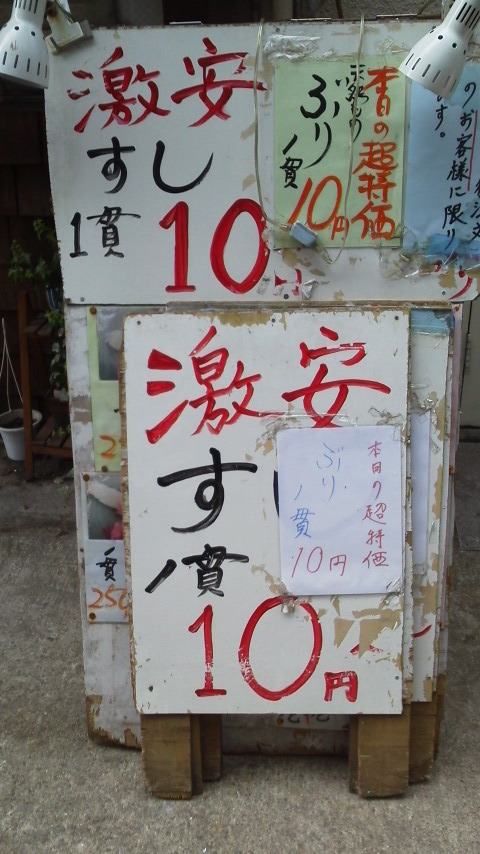 激安
すし
1貫
10
本日の超特価
天然もの
ぶり
1貫
10円
のお客様に限り
す。
激安
す
1貫
10円
本日の超特価
ぶり
1貫
10円
貫
250
2